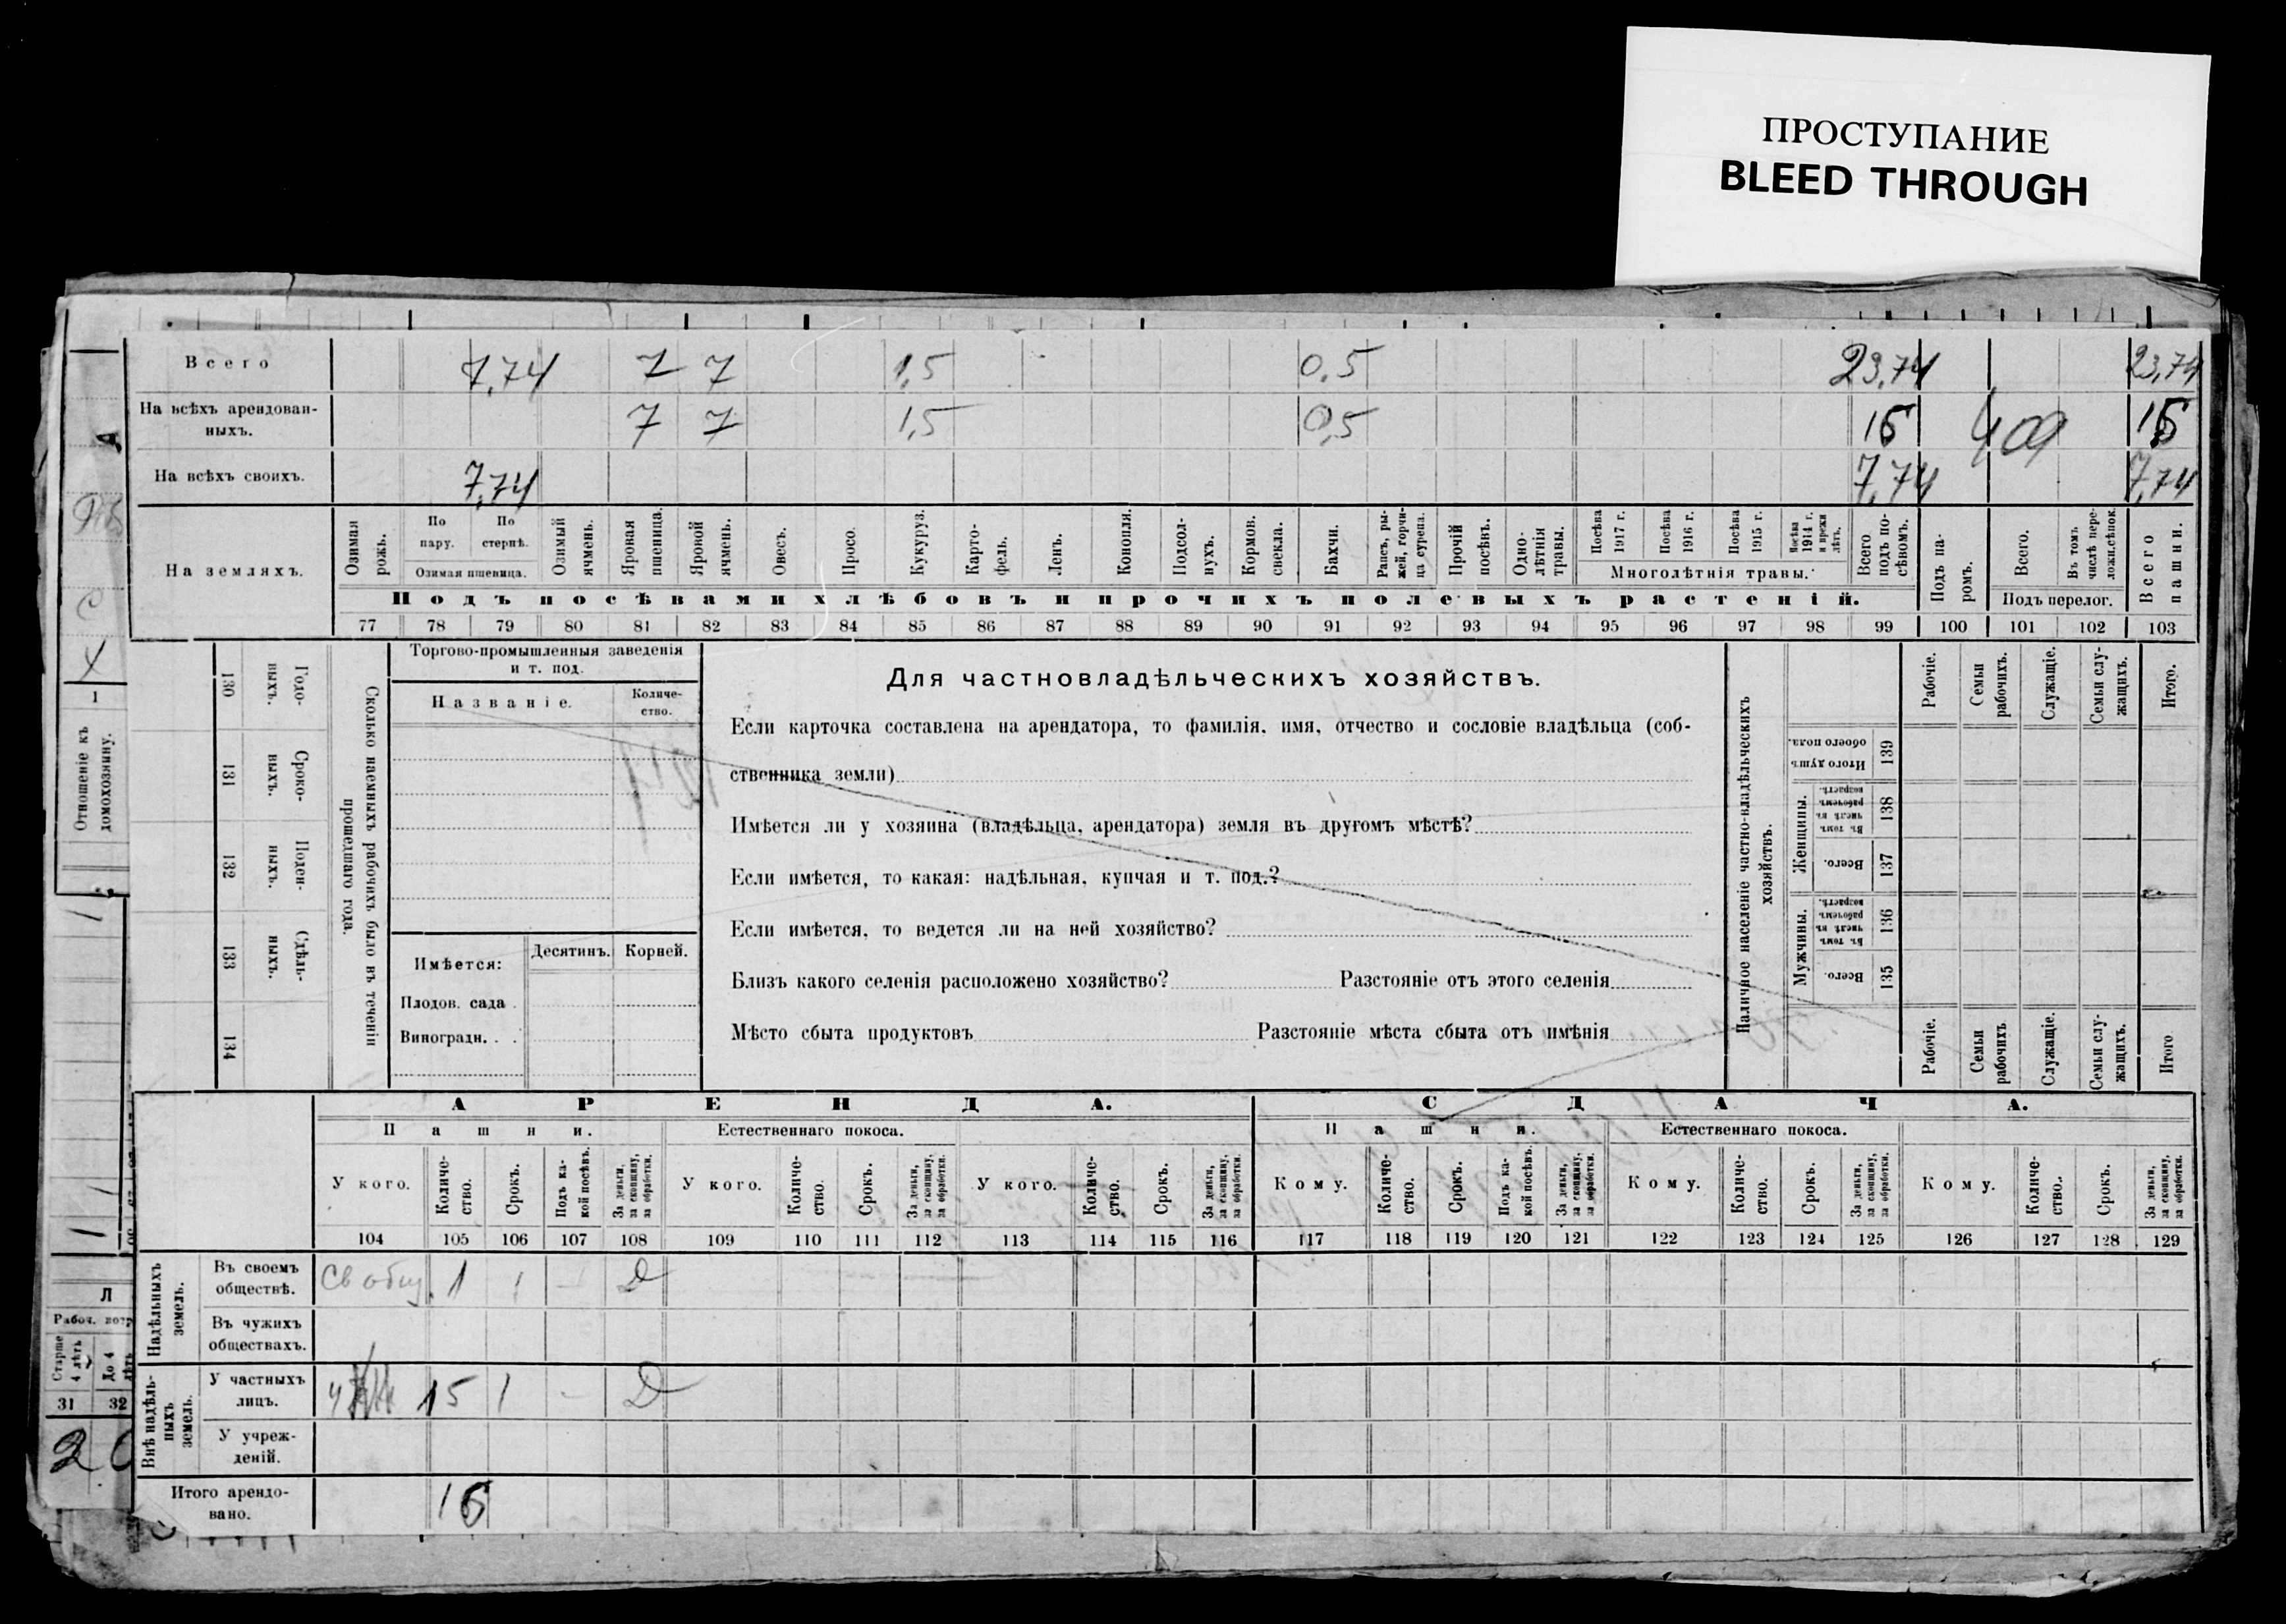 ПРОСТУПАНИЕ
BLEED THROUGH
Всего 7,74 7 7 1,5 0,5 23,74 23,74
На всѣхъ арендован-
ныхъ. 7 7 1,5 0,5 16 16
На всѣхъ своихъ. 7,74 7,74 7,74
На земляхъ.
Озимая рожь.
По пару.
По стернѣ.
Озимая пшеница.
Озимый ячмень.
Яровая пшеница.
Яровой ячмень.
Овесъ.
Просо.
Кукуруз.
Карто-
фель.
Ленъ.
Конопля.
Подсол-
нухъ.
Кормов. свекла.
Бахчи.
Рапсъ, ры-
жей, горчи-
ца сурепа.
Прочій посѣвъ.
Одно-
лѣтнія травы.
Посѣва 1917 г.
Посѣва 1916 г.
Посѣва 1915 г.
Посѣва 1914 г. и прежн лѣтъ.
Многолѣтнія травы.
Всего подъ по-
сѣвомъ.
Подъ па-
ромъ.
Всего.
Въ томъ числѣ пере-
ложн.сѣнок.
Подъ перелог.
Всего пашни.
Подъ посѣвами хлѣбовъ и прочихъ полевыхъ растеній.
77 78 79 80 81 82 83 84 85 86 87 88 89 90 91 92 93 94 95 96 97 98 99 100 101 102 103
1
Отношеніе къ
домохозяину.
130 Годо-
выхъ.
131 Сроко-
ныхъ.
132 Поден-
ныхъ.
133 Сдѣль-
ныхъ.
134
Сколько наемныхъ рабочихъ было въ теченіи
прошедшаго года.
Торгово-промышленныя заведенія
и т. под.
Названіе.
Количе-
ство.
Имѣется:
Десятинъ. Корней.
Плодов. сада .
Виноградн. . .
Для частновладѣльческихъ хозяйствъ.
Если карточка составлена на арендатора, то фамилія, имя, отчество и сословіе владѣльца (соб-
ственника земли)
Имѣется ли у хозяина (владѣльца, арендатора) земля въ другомъ мѣстѣ?
Если имѣется, то какая: надѣльная, купчая и т. под.?
Если имѣется, то ведется ли на ней хозяйство?
Близъ какого селенія расположено хозяйство? Разстояніе отъ этого селенія
Мѣсто сбыта продуктовъ Разстояніе мѣста сбыта отъ имѣнія
Наличное населеніе частно-владѣльческихъ
хозяйствъ.
Итого душъ обоего пола. 139
Женщины.
Въ томъ числѣ въ рабочемъ возрастѣ. 138
Всего. 137
Мужчины.
Въ томъ числѣ въ рабочемъ возрастѣ. 136
Всего. 135
Рабочіе.
Семьи рабочихъ.
Служащіе.
Семьи слу-
жащихъ.
Итого.
Рабочіе.
Семьи рабочихъ
Служащіе.
Семьи слу-
жащихъ.
Итого
АРЕНДА. СДАЧА.
Пашни. Естественнаго покоса. Пашни. Естественнаго покоса.
У кого.
Количе-
ство.
Срокъ.
Подъ ка-
кой посѣвъ.
За деньги, за скопщину, за обработки.
У кого.
Количе-
ство.
Срокъ.
За деньги, за скопщину, за обработки.
У кого.
Количе-
ство.
Срокъ.
За деньги, за скопщину, за обработки.
Кому.
Количе-
ство.
Срокъ.
Подъ ка-
кой посѣвъ.
За деньги, за скопщину, за обработки.
Кому.
Количе-
ство.
Срокъ.
За деньги, за скопщину, за обработки.
Кому.
Количе-
ство.
Срокъ.
За деньги, за скопщину, за обработки.
104 105 106 107 108 109 110 111 112 113 114 115 116 117 118 119 120 121 122 123 124 125 126 127 128 129
Надѣльныхъ
земель.
Въ своемъ
обществѣ. Св общ. 1 1 - Д
Въ чужихъ
обществахъ.
Внѣ надѣль-
ныхъ
земель.
У частныхъ
лицъ. 15 1 - Д
У учреж-
деній.
Итого арендо-
вано. 16
Л
Рабоч.
Старше 4 лѣтъ
До 4 лѣтъ
31 32
2